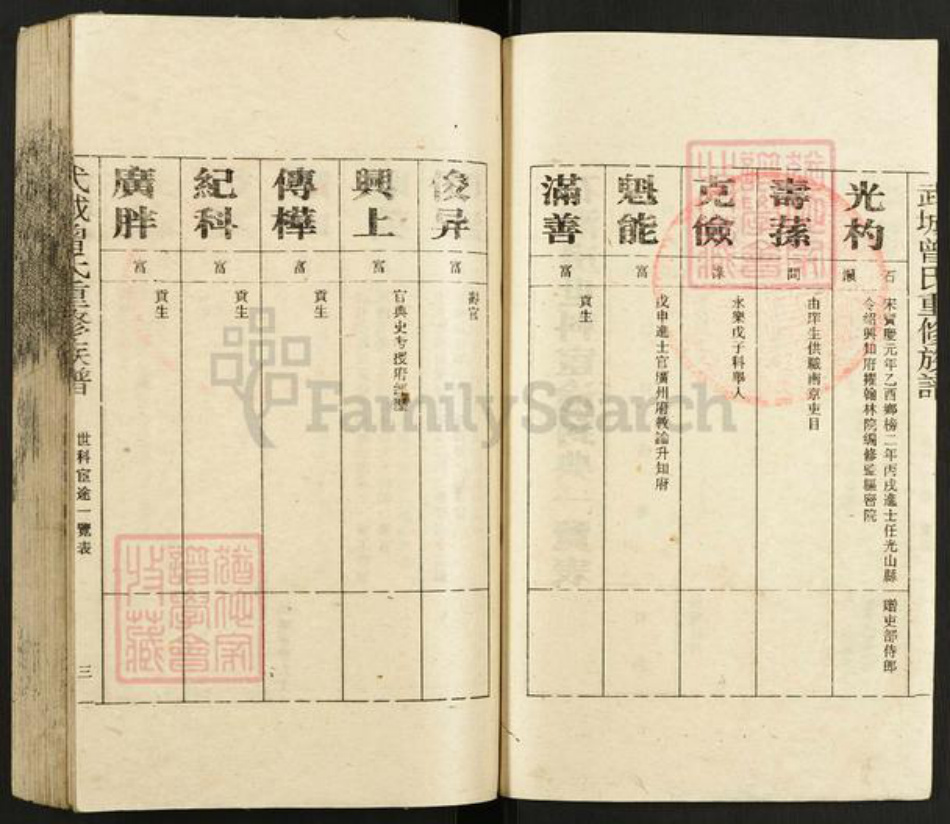 武城曾氏重修族譜
光灼
石瀨
宋寳慶元年乙酉鄉榜二年丙戌進士任光山縣
令紹興知府擢翰林院編修監樞密院
贈吏部侍郎
壽蓀
問
由庠生供職南京吏目
克儉
永樂戊子科舉人
魁能
富
戊申進士官廣州府教諭升知府
滿善
富
貢生
俊异
富
壽官
興上
富
官典史考授府經歷
傳樺
富
貢生
紀科
富
貢生
廣胖
富
貢生
武城曾氏重修族譜
世科宦途一覽表
三
FamilySearch